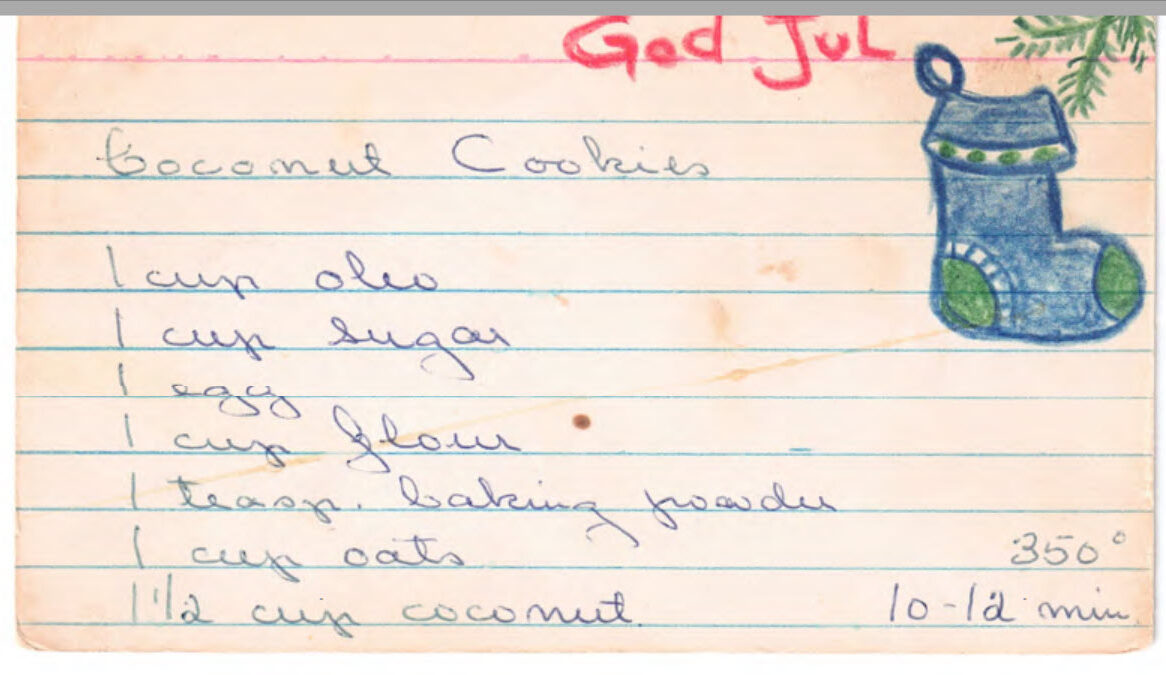 God Jul
Coconut Cookies
1 cup oleo
1 cup sugar
1 egg
1 cup flour
1 teasp. baking powder
1 cup oats 350°
1 1/2 cup coconut 10-12 min.